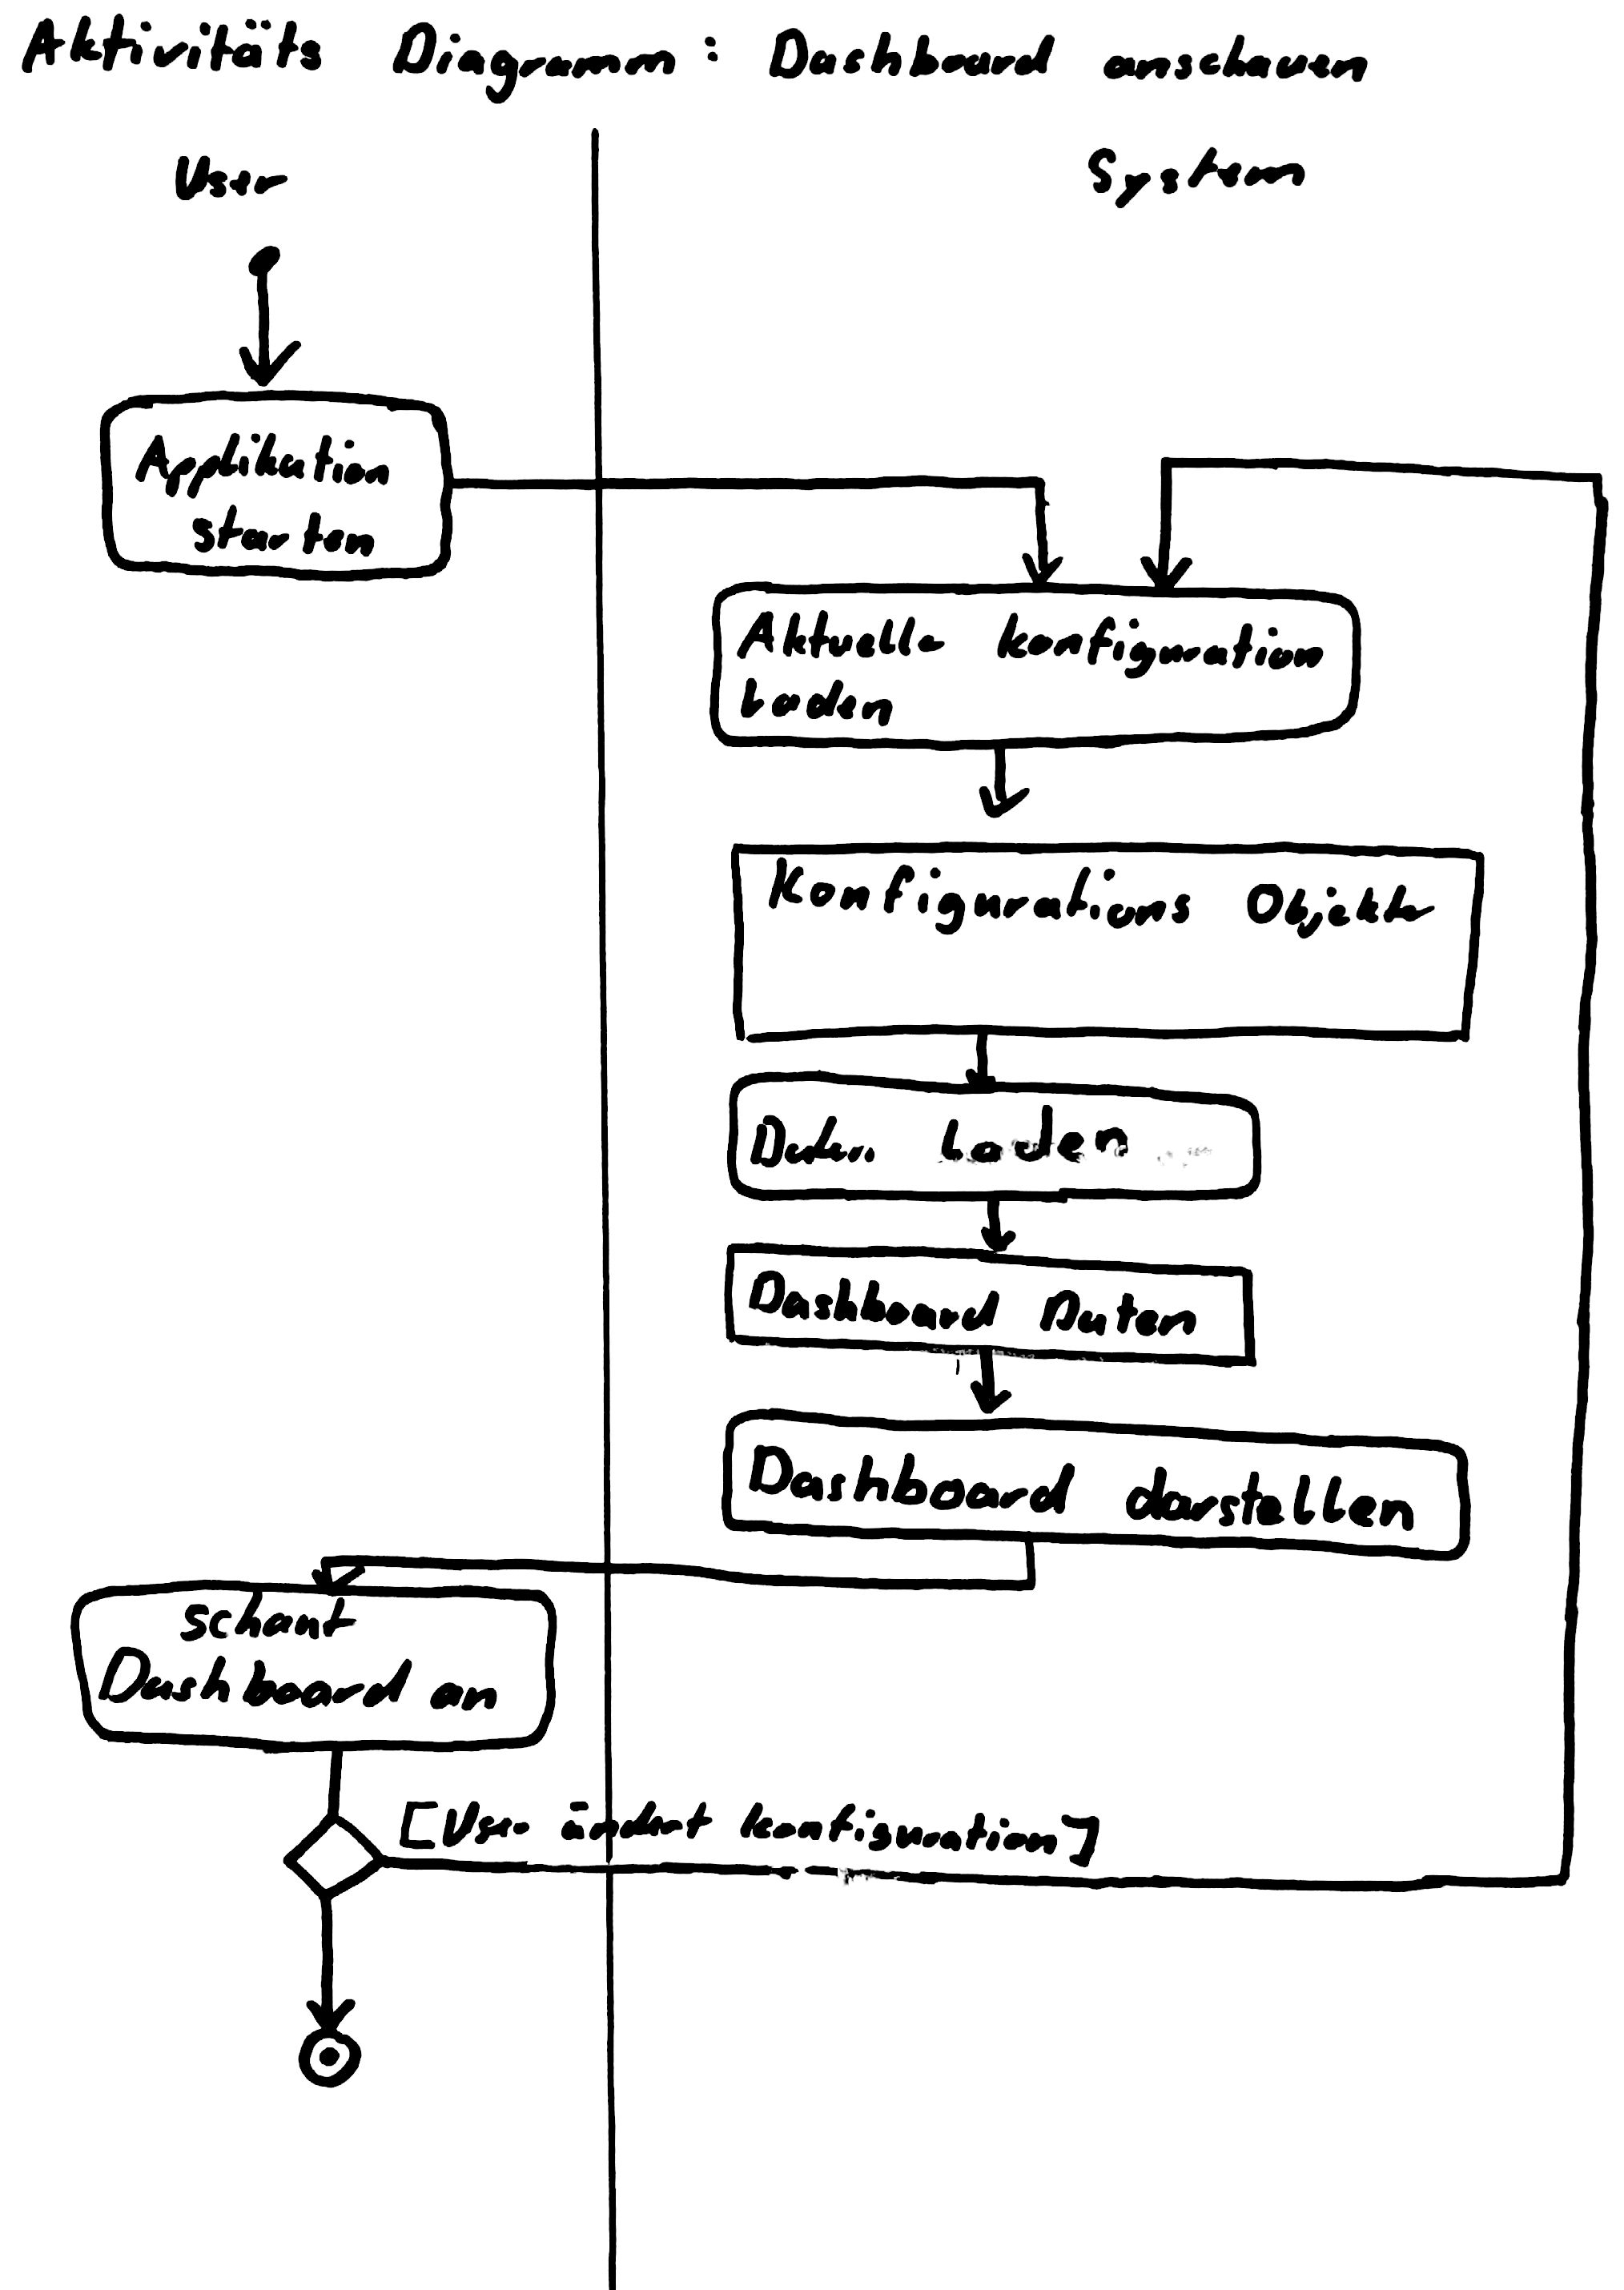 Aktivitäts Diagramm: Dashboard anschauen
User
System
Applikation
starten
Aktuelle Konfiguration
Laden
Konfigurations Objekte
Daten Laden
Dashboard Daten
Dashboard darstellen
schaut
Dashboard an
[User ändert Konfiguration]